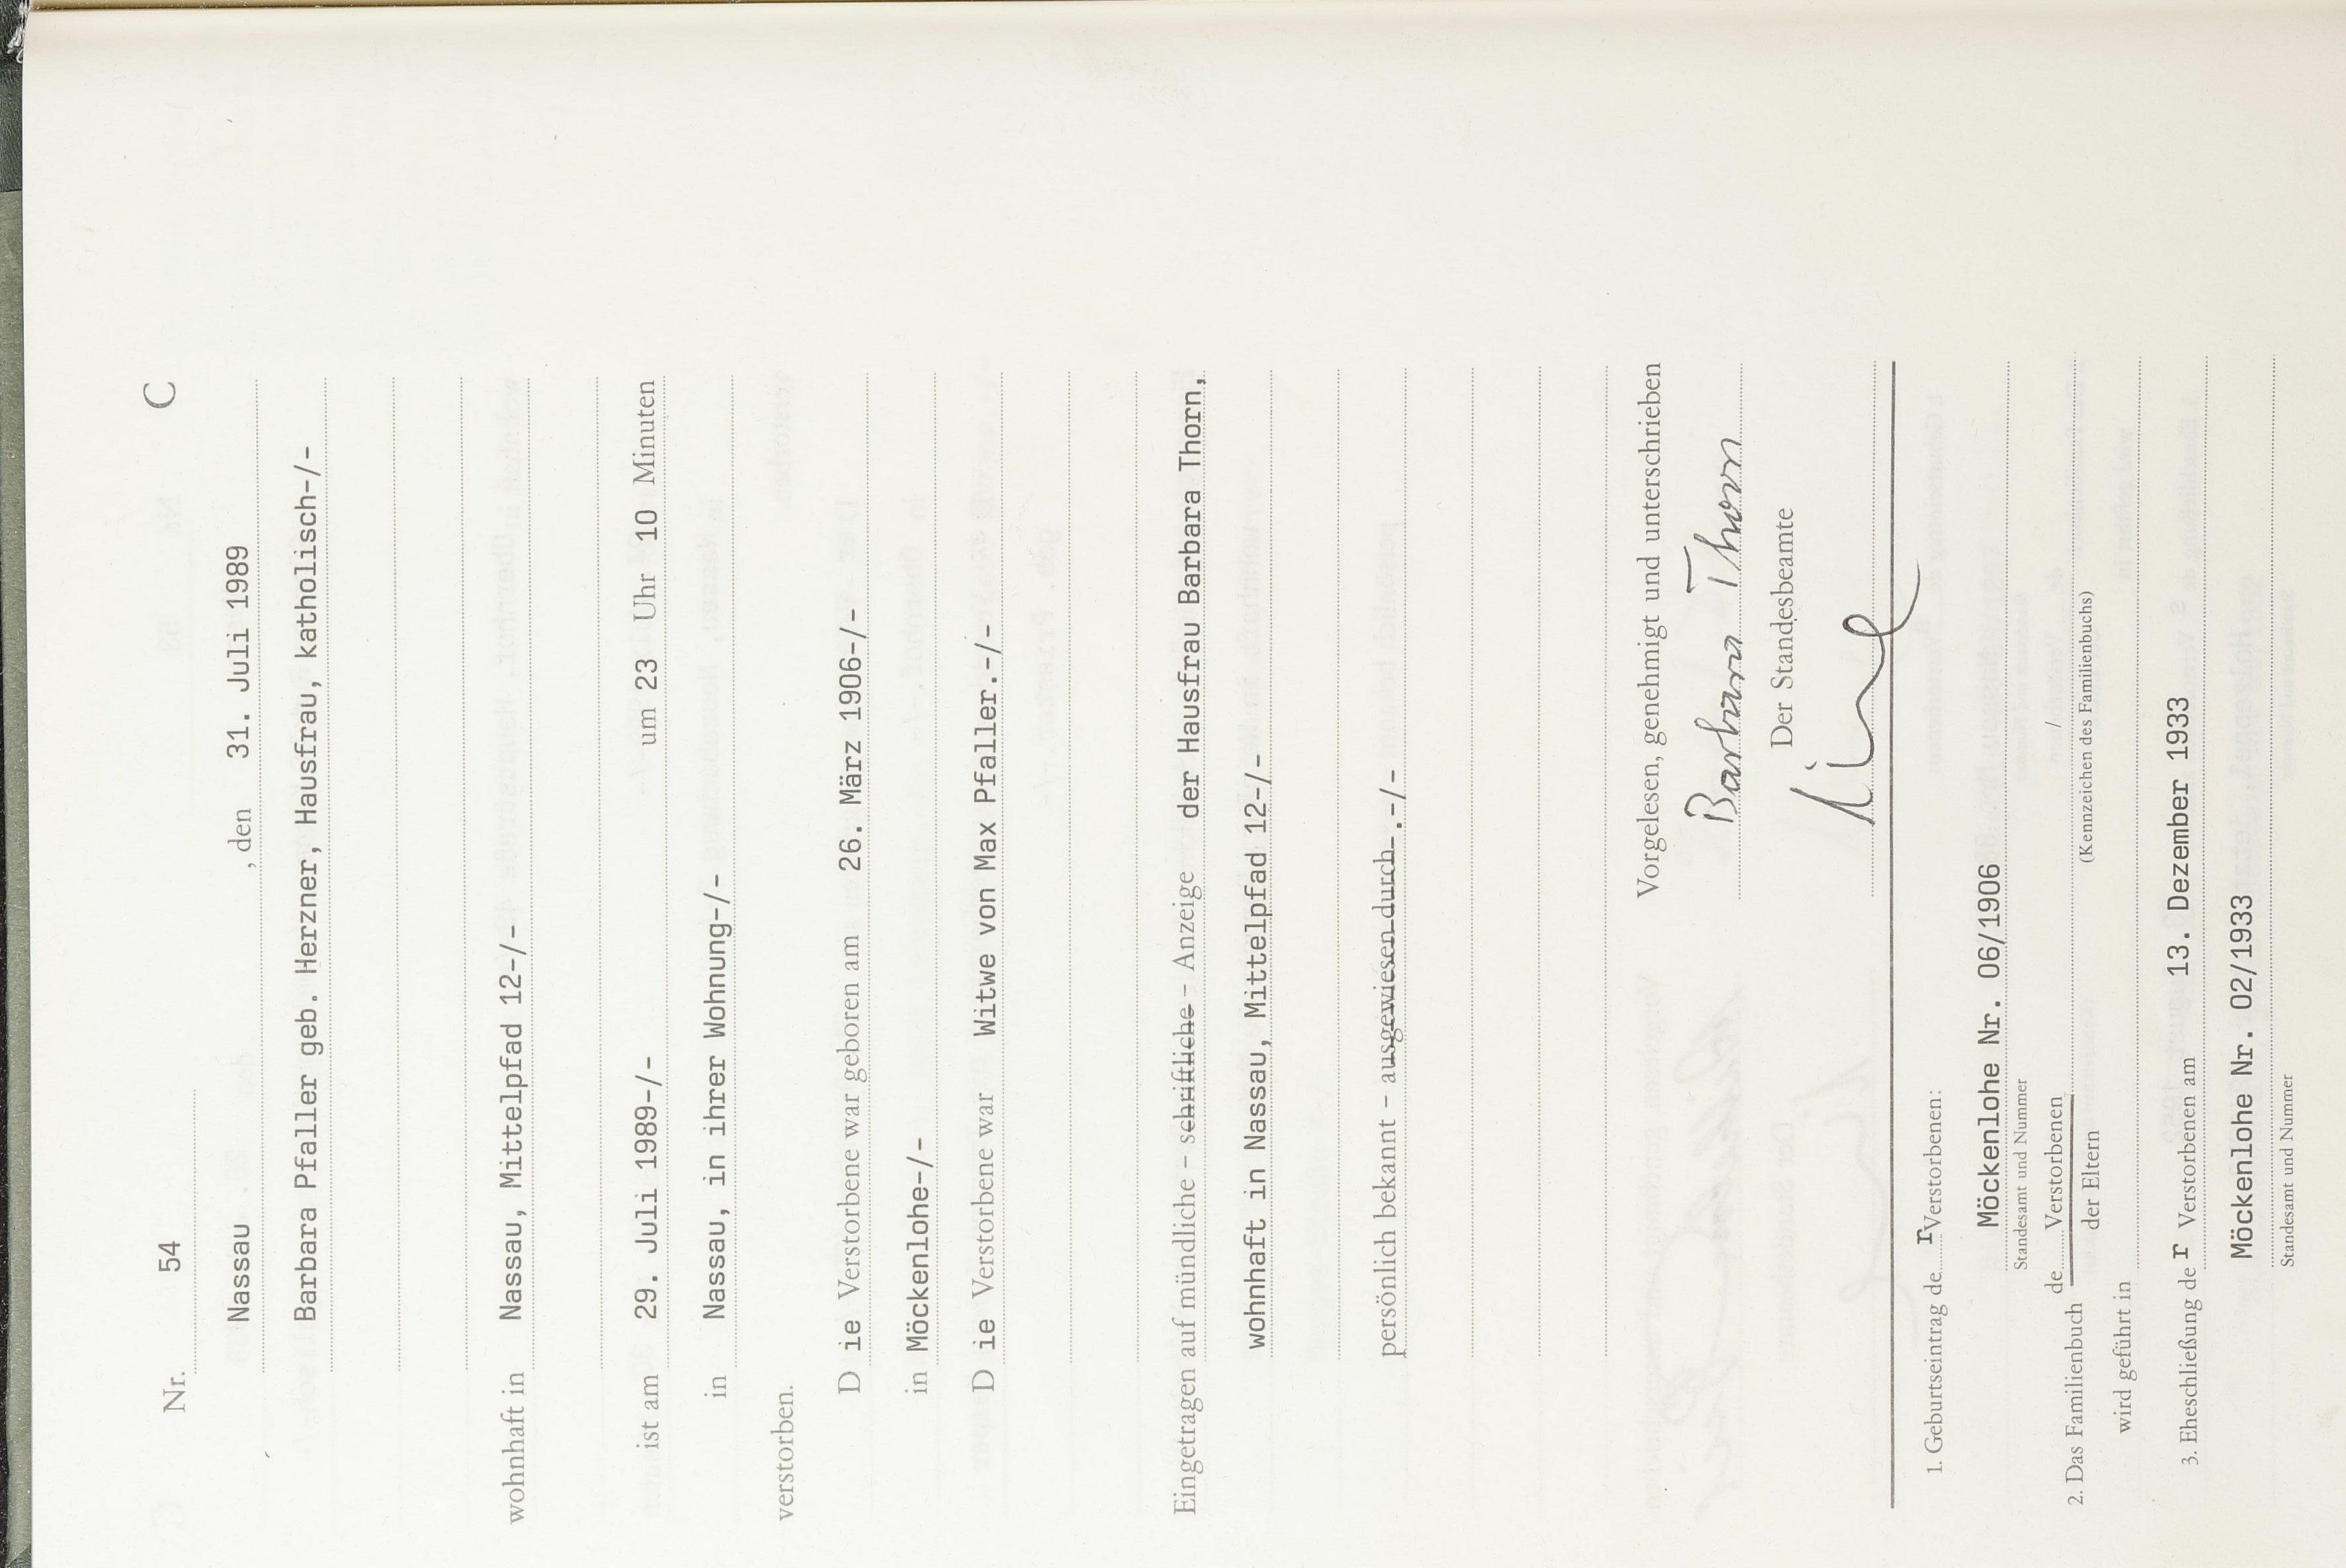 Nr. 54 C
Nassau , den 31. Juli 1989
Barbara Pfaller geb. Herzner, Hausfrau, katholisch-/-
wohnhaft in Nassau, Mittelpfad 12-/-
ist am 29. Juli 1989-/- um 23 Uhr 10 Minuten
in Nassau, in ihrer Wohnung-/-
verstorben.
D ie Verstorbene war geboren am 26. März 1906-/-
in Möckenlohe-/-
D ie Verstorbene war Witwe von Max Pfaller.-/-
Eingetragen auf mündliche – schriftliche – Anzeige der Hausfrau Barbara Thorn,
wohnhaft in Nassau, Mittelpfad 12-/-
persönlich bekannt – ausgewiesen durch .-/-
Vorgelesen, genehmigt und unterschrieben
Barbara Thorn
Der Standesbeamte
1. Geburtseintrag de r Verstorbenen:
Möckenlohe Nr. 06/1906
Standesamt und Nummer
de Verstorbenen /
2. Das Familienbuch
der Eltern (Kennzeichen des Familienbuchs)
wird geführt in
3. Eheschließung de r Verstorbenen am 13. Dezember 1933
Möckenlohe Nr. 02/1933
Standesamt und Nummer